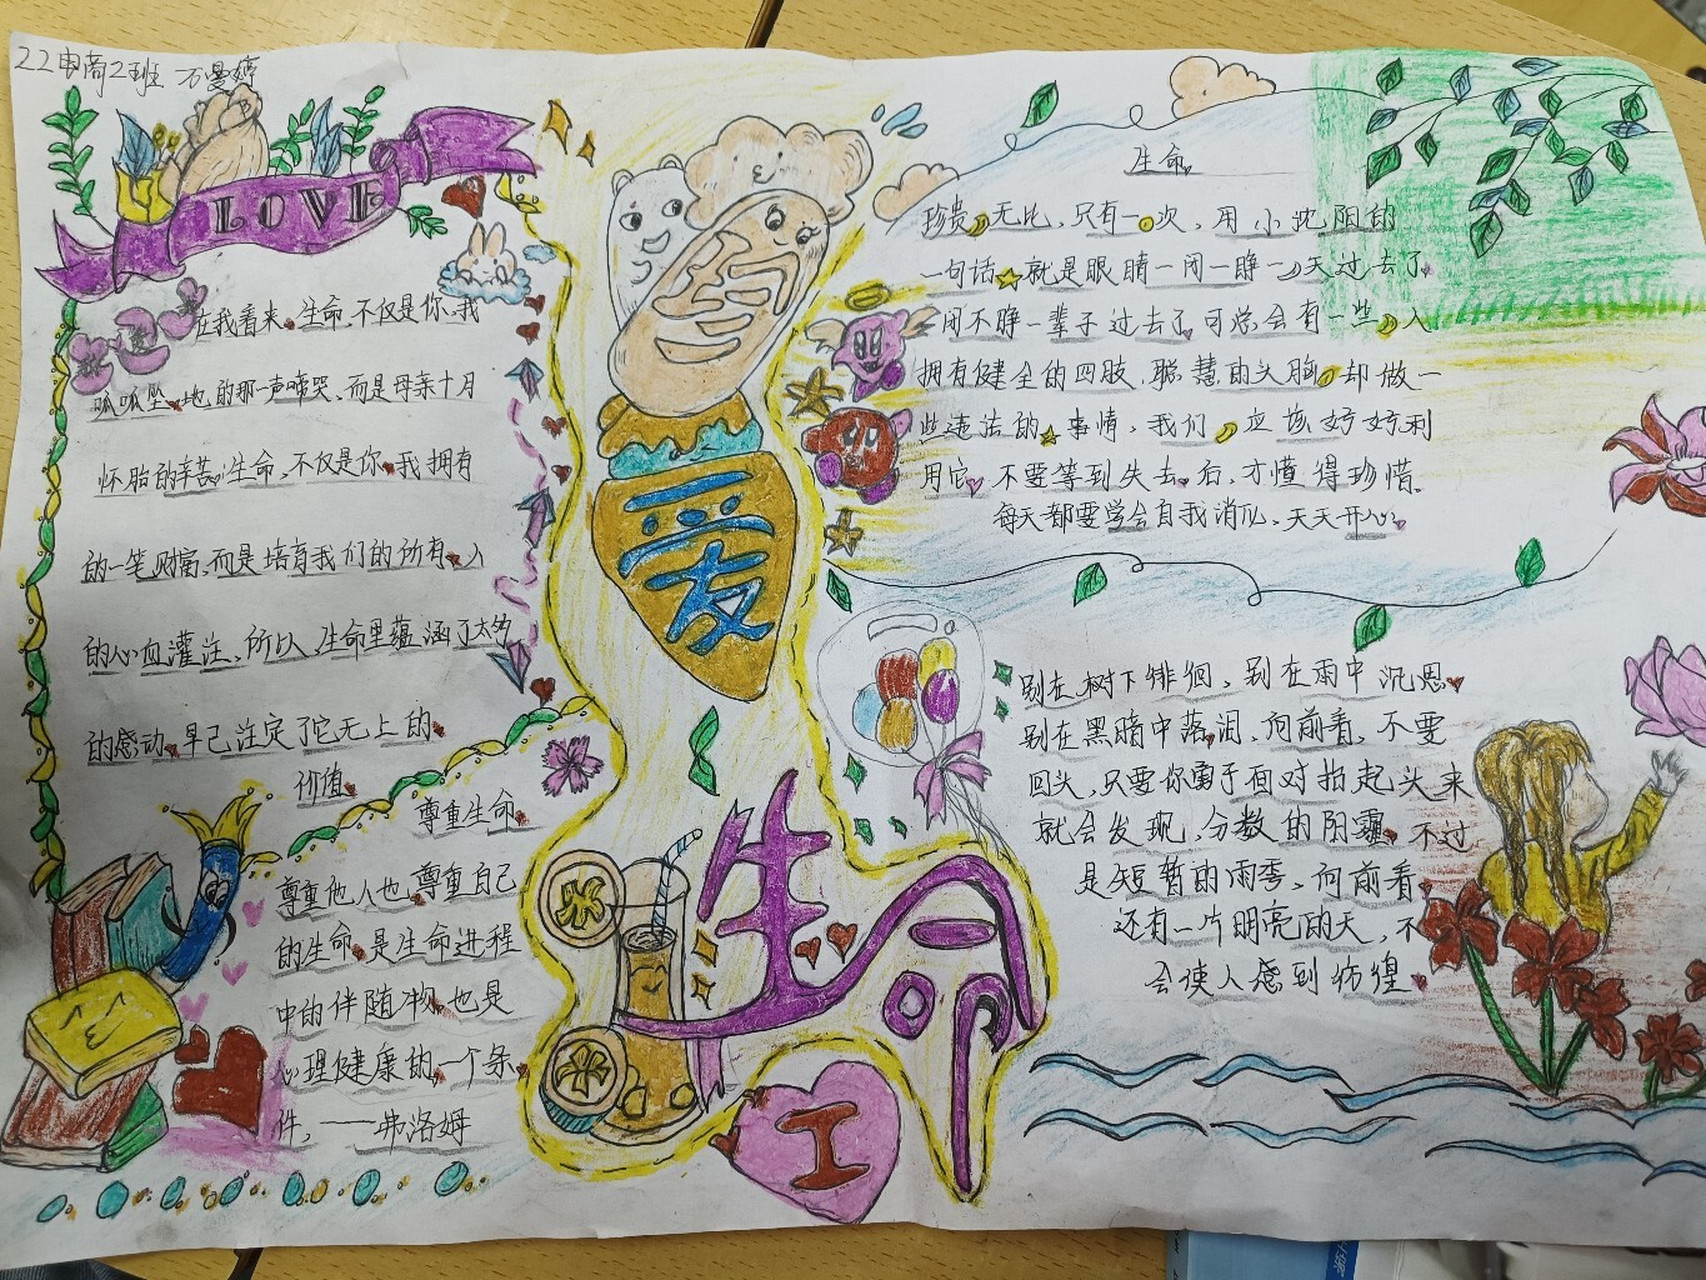 22电商2班 万曼婷
LOVE
在我看来,生命,不仅是你、我
呱呱坠地的那一声啼哭,而是母亲十月
怀胎的辛苦,生命,不仅是你、我拥有
的一笔财富,而是培育我们的所有人
的心血灌注、所以、生命里蕴涵了太多
的感动,早已注定了它无上的
价值。
尊重生命
尊重他人也尊重自己
的生命,是生命进程
中的伴随物,也是
心理健康的一个条
件,——弗洛姆
珍爱
生命
工
生命
珍贵无比,只有一次,用小沈阳的
一句话就是眼睛一闭一睁一天过去了
一闭不睁一辈子过去了可总会有一些人
拥有健全的四肢、聪慧的头脑却做一
些违法的事情,我们应该好好利
用它,不要等到失去后,才懂得珍惜。
每天都要学会自我消化、天天开心
别在树下徘徊,别在雨中沉思
别在黑暗中落泪,向前看,不要
回头,只要你勇于面对抬起头来
就会发现,分数的阴霾,不过
是短暂的雨季、向前看
还有一片明亮的天,不
会使人感到彷徨